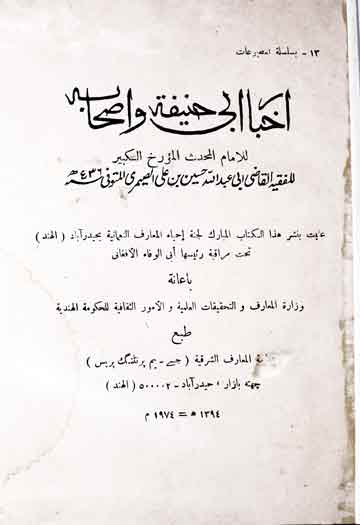 ١٣ - بسلسلة المطبوعات
اخبار ابى حنيفة واصحابه
للامام المحدث المؤرخ الكبير
للفقيه القاضى ابى عبدالله حسين بن على الصيمرى المتوفى سنة ٤٣٦ھ
عنيت بنشر هذا الكتاب المبارك لجنة إحياء المعارف النعمانية بحيدرآباد ( الهند )
تحت مراقبة رئيسها أبى الوفاء الأفغانى
باعانة
وزارة المعارف و التحقيقات العلمية و الأمور الثقافية للحكومة الهندية
طبع
المعارف الشرقية ( جے - يم پرنٹنگ پريس )
چهته بازار ، حيدرآباد - ٥٠٠٠٠٢ ( الهند )
١٣٩٤ ھ = ١٩٧٤ م